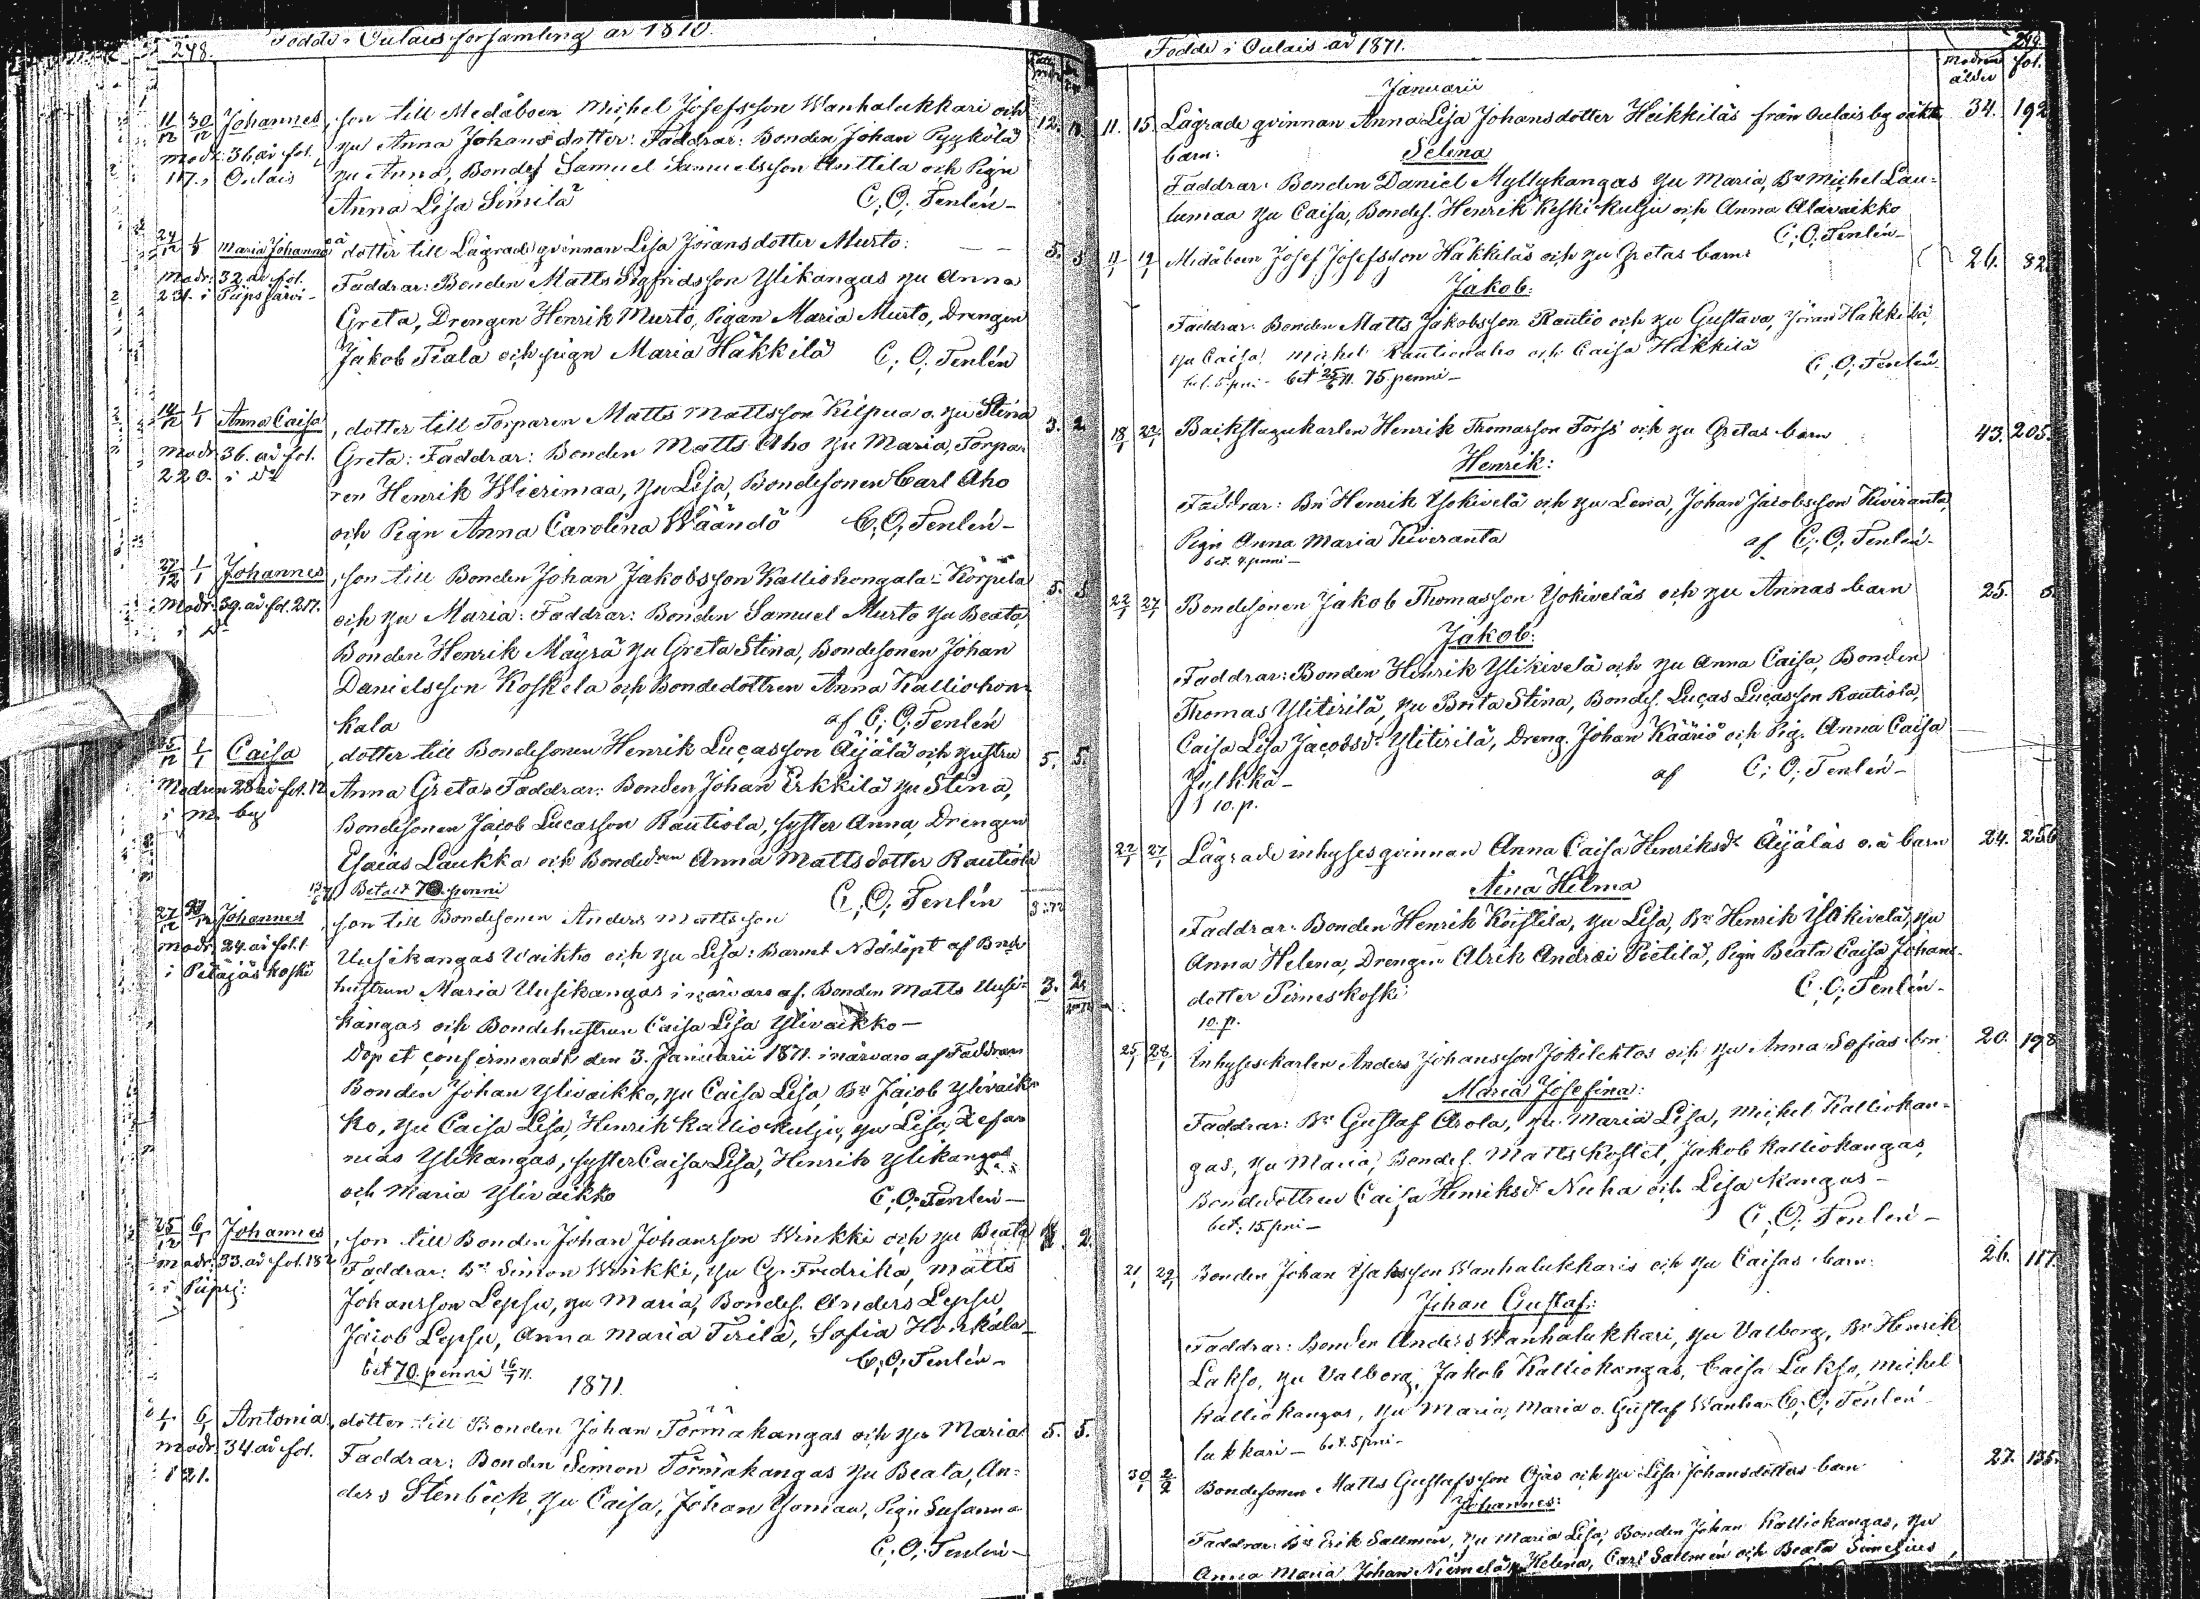 248.
Födde i Oulais församling år 1870.
11/12 30/12 Johannes, son till Medåboen Michel Josefsson Wanhalukkari och 12.
modr. 36 år fol. hu Anna Johansdotter: Faddrar: Bonden Johan Pyykölä
117. i Oulais hu Anna, Bondes. Samuel Samuelsson Anttila och Pign
Anna Lisa Similä C. O. Fenlén
Maria Johanna dotter till Lägrade qvinnan Lisa Jöransdotter Murto: 5. 5
modr. 32 år fol. Faddrar: Bonden Matts Sigfridsson Ylikangas hu Anna
231. i Piipsjärvi Greta, Drengen Henrik Murto, Pigan Maria Murto, Drengen
Jakob Tiala och pign Maria Häkkilä C. O. Fenlén
14/12 1/1 Anna Caisa, dotter till Torparen Matts Mattsson Kilpua o. hu Stina 3. 2
modr 36. år fol. Greta: Faddrar: Bonden Matts Aho hu Maria, Torpa-
220. i do ren Henrik Wierimaa, hu Lisa, Bondesonen Carl Aho
och Pign Anna Carolina Wäändö C. O. Fenlén
27/12 1/1 Johannes, son till Bonden Johan Jakobsson Kalliohongala: Korpela 5. 5
Modr. 39. år fol. 217. och hu Maria: Faddrar: Bonden Samuel Murto hu Beata,
i do Bonden Henrik Mäyrä hu Greta Stina, Bondesonen Johan
Danielsson Koskela och Bondedottren Anna Kalliohon-
kala af C. O. Fenlén
25/12 1/1 Caisa, dotter till Bondesonen Henrik Lucasson Äijälä och hustru 5. 5.
Modren 28 år fol. 12 Anna Greta: Faddrar: Bonden Johan Erkkilä hu Stina,
i m. by Bondesonen Jacob Lucasson Rautiola, syster Anna, Drengen
Esaias Laukka och Bonded:ren Anna Mattsdotter Rautiola
Betalt 70 penni C. O. Fenlén
27/12 Johannes, son till Bondesonen Anders Mattsson
modr. 24. år fol. 1 Uusikangas Waikko och hu Lisa: Barnet Nöddöpt af Bonde
i Petäjäskoski hustrun Maria Uusikangas i närvaro af Bonden Matts Uusi- 3. 2.
kangas och Bondehustrun Caisa Lisa Ylivaikko
Dopet confirmeradt den 3. Januarii 1871. i närvaro af Faddran
Bonden Johan Ylivaikko, hu Caisa Lisa, Bn Jacob Ylivaik-
ko, hu Caisa Lisa, Henrik Kalliokulju, hu Lisa, Zefa-
nias Ylikangas, syster Caisa Lisa, Henrik Ylikangas
och Maria Ylivaikko C. O. Fenlén
25/12 6/1 Johannes, son till Bonden Johan Johansson Winkki och hu Beata 2.
modr. 33. år fol. 182 Faddrar: Bn Simon Winkki, hu Fredrika, Matts
i Piipsj: Johansson Lepsu, hu Maria, Bondes. Anders Lepsu,
Jacob Lepsu, Anna Maria Tirilä, Sofia Honkala
bet 70. penni 16/1 71. C. O. Fenlén
1871.
1/1 6/1 Antonia, dotter till Bonden Johan Törmäkangas och hu Maria 5. 5.
modr. 34. år fol. Faddrar: Bonden Simon Törmäkangas hu Beata, An-
121. ders Stenbäck, hu Caisa, Johan Yomaa, Pign Susanna
C. O. Fenlén
Födde i Oulais år 1871.
249.
Modrens ålder fol.
Januarii
11. 15. Lägrade qvinnan Anna Lisa Johansdotter Heikkiläs från Oulais by oäkta 34. 192
barn: Selina
Faddrar: Bonden Daniel Myllykangas hu Maria, Bn Michel Lau-
lumaa hu Caisa, Bondes. Henrik Keskikulju och Anna Alavaikko
C. O. Fenlén
Midåboen Josef Josefsson Häkkiläs och hu Gretas barn: 26. 82.
Jakob:
Faddrar: Bonden Matts Jakobsson Rautio och hu Gustava, Jöran Häkkilä,
hu Caisa, Michel Rautionaho och Caisa Häkkilä C. O. Fenlén
bet 71. 75. penni
18/1 22/1 Backstugukarlen Henrik Thomasson Forss och hu Gretas barn 43. 205.
Henrik:
Faddrar: Bn Henrik Yokivelä och hu Lena, Johan Jacobsson Kiviranta,
Pign Anna Maria Kiviranta af C. O. Fenlén
bet. 4. penni
22/1 27/1 Bondesonen Jakob Thomasson Yokiveläs och hu Annas barn 25. 5.
Jakob:
Faddrar: Bonden Henrik Ylikivelä och hu Anna Caisa, Bonden
Thomas Ylitirilä, hu Brita Stina, Bondes. Lucas Lucasson Rautiola,
Caisa Lisa Jacobsdr Ylitirilä, Dreng. Johan Kääriö och Pig. Anna Caisa
Julkkä af C. O. Fenlén
10. p.
22/1 27/1 Lägrade inhysesqvinnan Anna Caisa Henriksdr Äijäläs o. ä barn 24. 256
Aina Hilma
Faddrar: Bonden Henrik Koistila, hu Lisa, Bn Henrik Ylikivelä, hu
Anna Helena, Drengen Alrik Andrei Pietilä, Pign Beata Caisa Johans-
dotter Pirneskoski C. O. Fenlén
10. p.
25/1 28/1 Inhyseskarlen Anders Johansson Jokilehtos och hu Anna Sofias brn 20. 198
Maria Josefina:
Faddrar: Bn Gustaf Arola, hu Maria Lisa, Michel Kalliokan-
gas, hu Maria, Bondes. Matts Kostet, Jakob Kalliokangas,
Bondedottren Caisa Henriksdr Nuha och Lisa Kangas
bet. 15. pni C. O. Fenlén
21/1 29/1 Bonden Johan Isaksson Wanhalukkaris och hu Caisas barn: 26. 117.
Johan Gustaf:
Faddrar: Bonden Anders Wanhalukkari, hu Valborg, Bn Henrik
Lakso, hu Valborg, Jakob Kalliokangas, Caisa Lakso, Michel
Kalliokangas, hu Maria, Maria o. Gustaf Wanha- C. O. Fenlén
lukkari bet. 5 pni
30/1 2/2 Bondesonen Matts Gustafsson Ojas och hu Lisa Johansdotters barn 27. 135.
Johannes:
Faddrar: Bn Erik Sallmén, hu Maria Lisa, Bonden Johan Kalliokangas, hu
Anna Maria, Johan Niemelä, hu Helena, Carl Sallmén och Beata Simelius